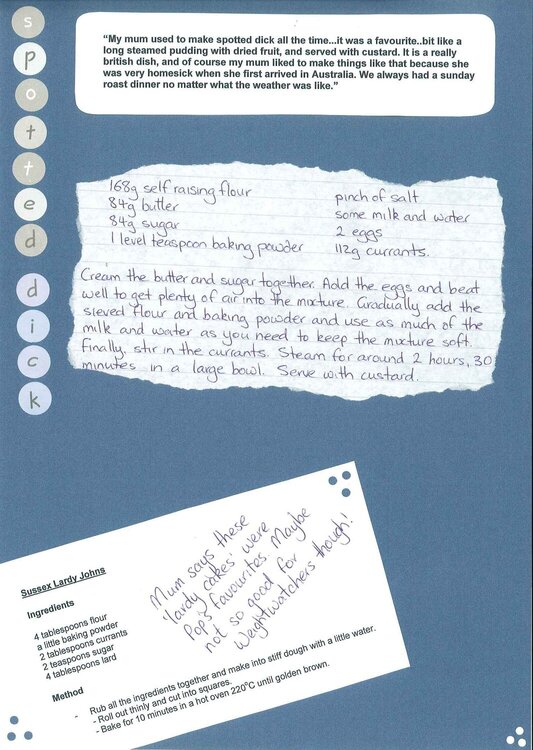 spotted
dick
“My mum used to make spotted dick all the time...it was a favourite..bit like a
long steamed pudding with dried fruit, and served with custard. It is a really
british dish, and of course my mum liked to make things like that because she
was very homesick when she first arrived in Australia. We always had a sunday
roast dinner no matter what the weather was like.”
168g self raising flour
84g butter
84g sugar
1 level teaspoon baking powder
pinch of salt
some milk and water
2 eggs
112g currants.
Cream the butter and sugar together. Add the eggs and beat
well to get plenty of air into the mixture. Gradually add the
sieved flour and baking powder and use as much of the
milk and water as you need to keep the mixture soft.
Finally, stir in the currants. Steam for around 2 hours, 30
minutes in a large bowl. Serve with custard.
Mum says these
'lardy cakes' were
Pop's favourites. Maybe
not so good for
Weightwatchers though!
Sussex Lardy Johns
Ingredients
4 tablespoons flour
a little baking powder
2 tablespoons currants
2 teaspoons sugar
4 tablespoons lard
Method
- Rub all the ingredients together and make into stiff dough with a little water.
- Roll out thinly and cut into squares.
- Bake for 10 minutes in a hot oven 220°C until golden brown.